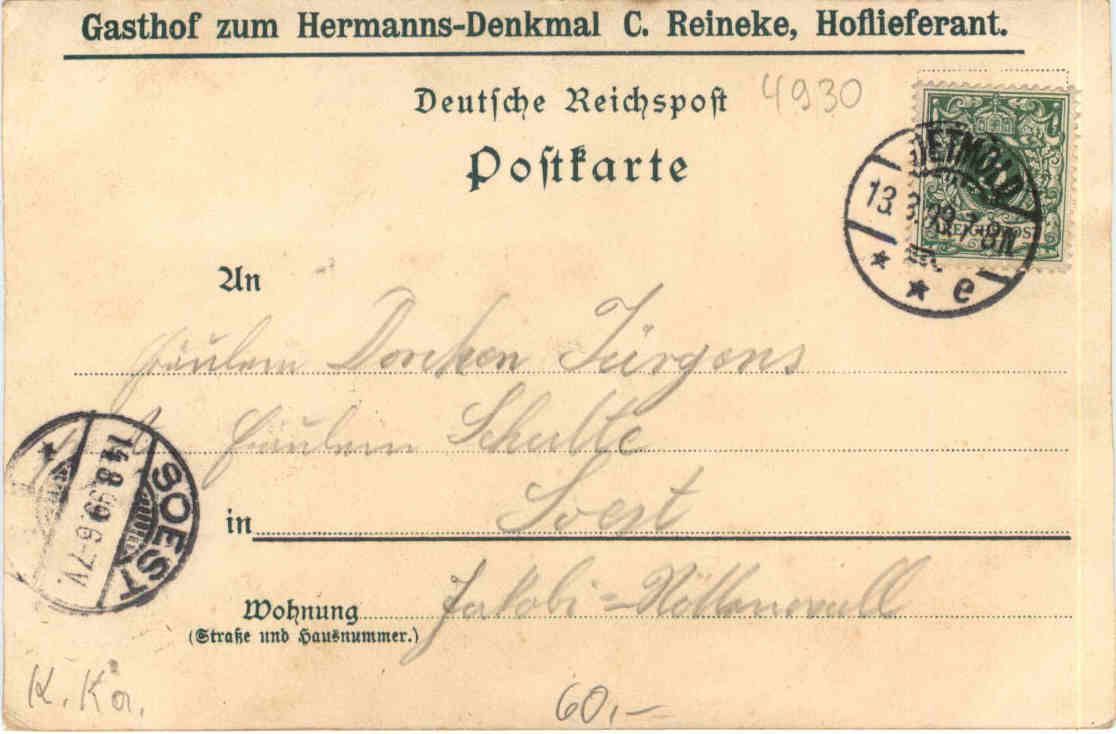 Gasthof zum Hermanns-Denkmal C. Reineke, Hoflieferant.
Deutsche Reichspost
4930
Postkarte
DETMOLD
13.8.99.7-8N
REICHSPOST
* * e
An
Fräulein Dorchen Jürgens
Fräulein Schulte
in Soest
SOEST
14.8.99 6-7V.
*
Wohnung Jakobi-Nöttenwall
(Straße und Hausnummer.)
K.Ka.
60,-